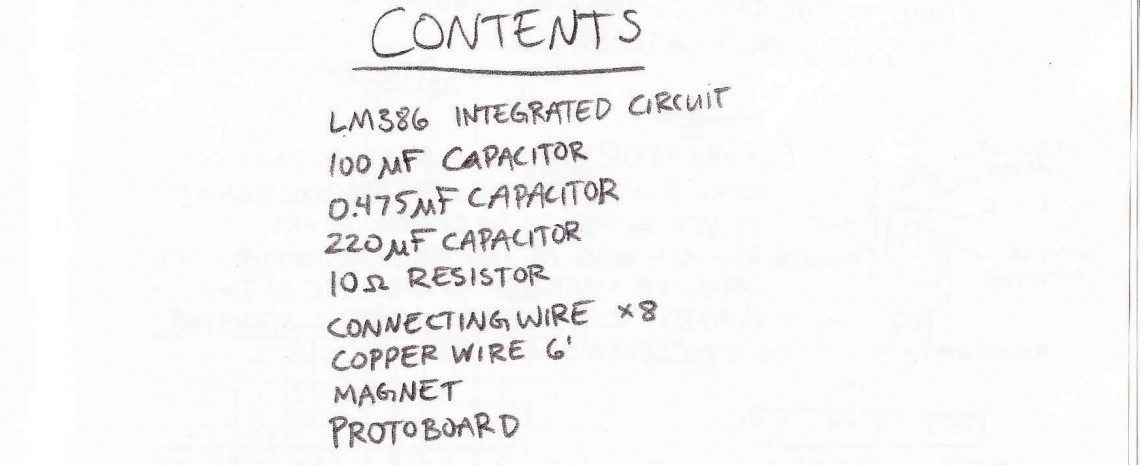 CONTENTS
LM386 INTEGRATED CIRCUIT
100 µF CAPACITOR
0.475µF CAPACITOR
220µF CAPACITOR
10Ω RESISTOR
CONNECTING WIRE ×8
COPPER WIRE 6'
MAGNET
PROTOBOARD